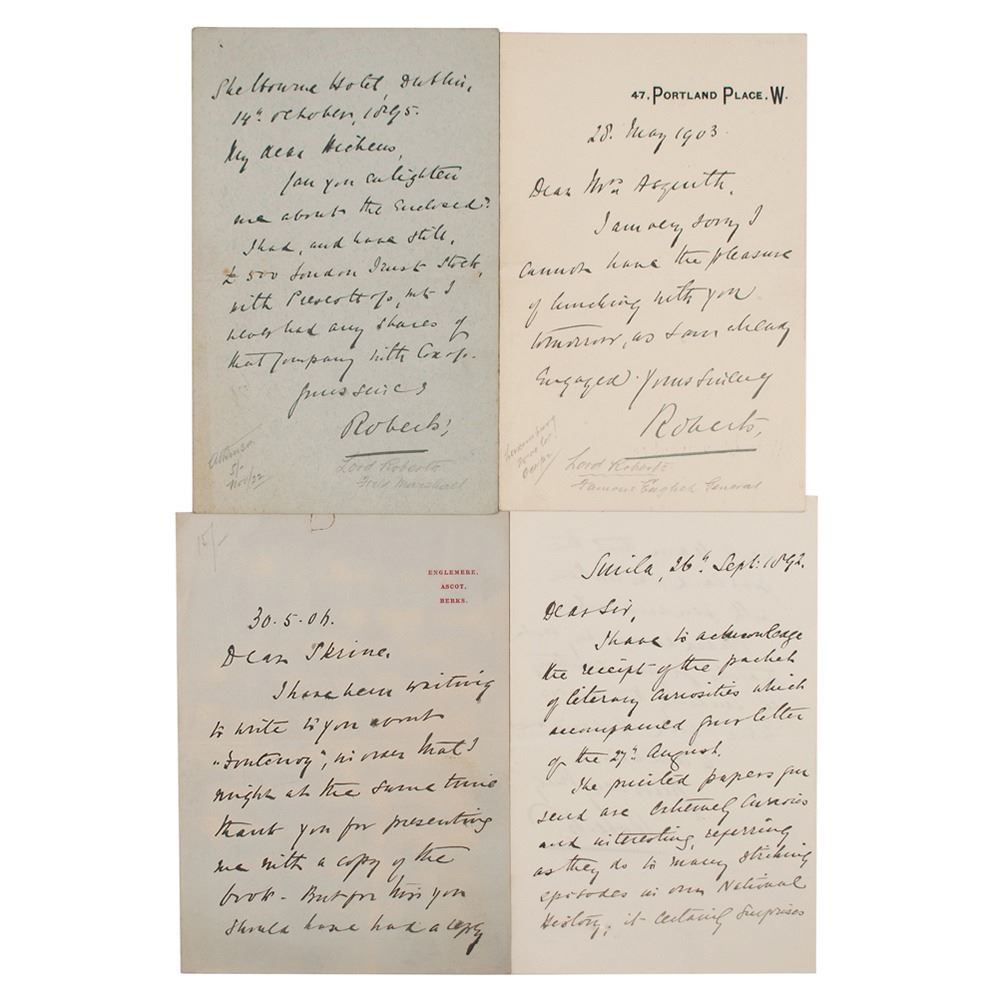 Shelbourne Hotel, Dublin,
14th October, 1895.
My dear Hichens,
Can you enlighten
me about the Enclosed?
I had, and have still,
£500 London Trust Stock,
with Prescott & Co, but I
never had any shares of
that Company with Cox & Co.
Yours sincely
Roberts,
5/-
Nov/22
Lord Roberts
Field Marshal
47, PORTLAND PLACE. W.
28. May 1903.
Dear Mrs Asquith,
I am very sorry I
cannot have the pleasure
of lunching with you
tomorrow, as I am already
Engaged. Yours sincerely
Roberts,
Lord Roberts
Famous English General
15/-
ENGLEMERE,
ASCOT,
BERKS.
30.5.06.
Dear Skrine,
I have been waiting
to write to you about
"Fontenoy", in order that I
might at the same time
thank you for presenting
me with a copy of the
book - But for this you
should have had a reply
Simla, 26th Sept: 1892.
Dear Sir,
I have to acknowledge
the receipt of the packet
of literary curiosities which
accompanied your letter
of the 27th August.
The printed papers you
send are extremely curious
and interesting, referring
as they do to many striking
episodes in our National
History, it certainly surprises